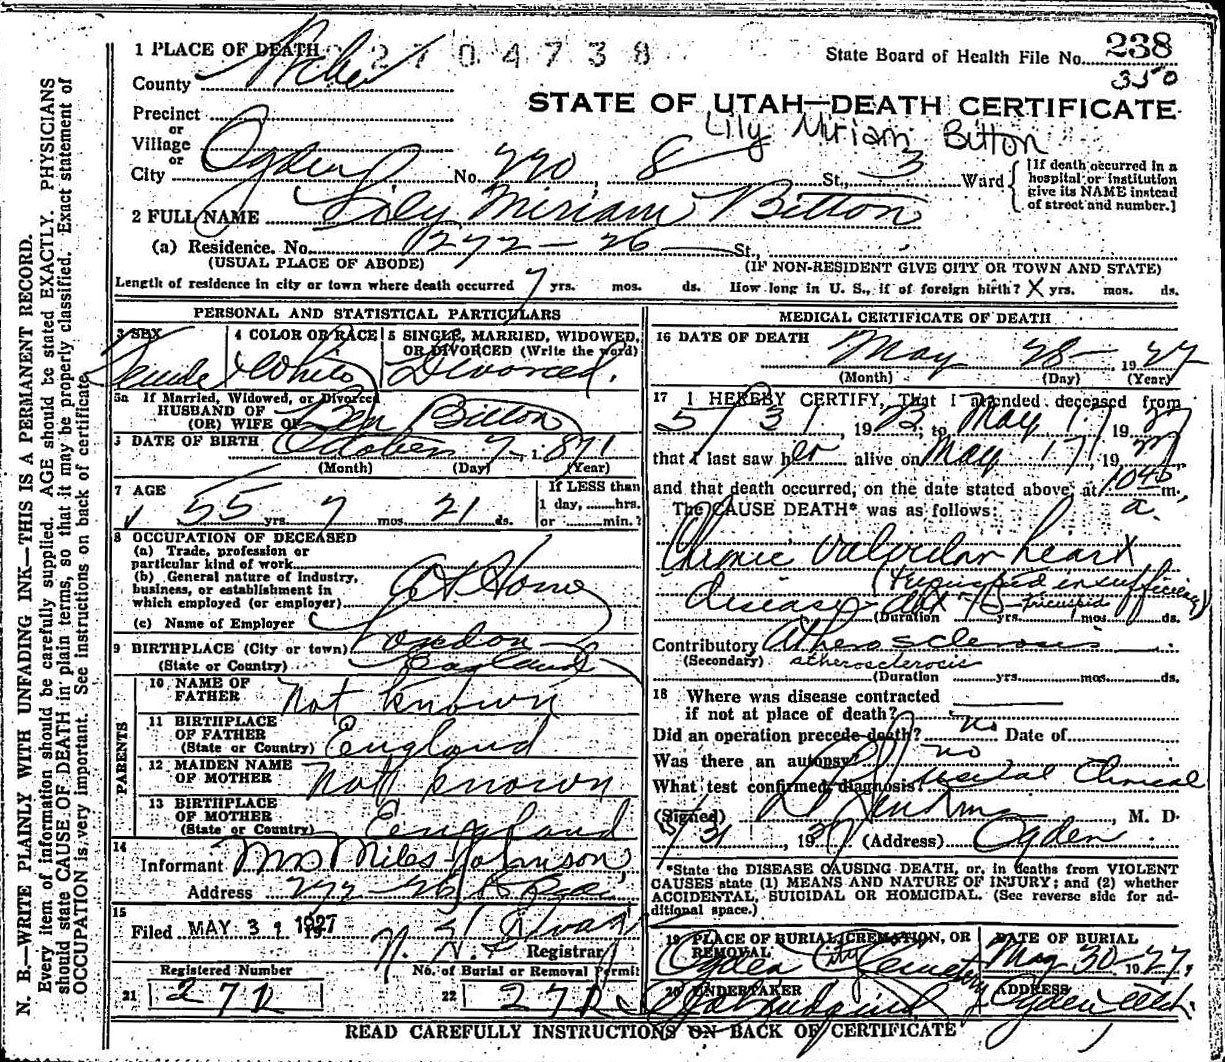 N. B.—WRITE PLAINLY WITH UNFADING INK—THIS IS A PERMANENT RECORD.
Every item of information should be carefully supplied. AGE should be stated EXACTLY. PHYSICIANS
should state CAUSE OF DEATH in plain terms, so that it may be properly classified. Exact statement of
OCCUPATION is very important. See instructions on back of certificate
1 PLACE OF DEATH 2704738
State Board of Health File No. 238
350
County Weber
STATE OF UTAH—DEATH CERTIFICATE
Lily Miriam Bitton
Precinct
or
Village
or
City Ogden No. 220, 8 St., 3 Ward
[If death occurred in a
hospital or institution
give its NAME instead
of street and number.]
2 FULL NAME Lily Miriam Bitton
(a) Residence. No. 272 - 26 St.,
(USUAL PLACE OF ABODE) (IF NON-RESIDENT GIVE CITY OR TOWN AND STATE)
Length of residence in city or town where death occurred 7 yrs. mos. ds. How long in U. S., if of foreign birth? X yrs. mos. ds.
PERSONAL AND STATISTICAL PARTICULARS
3 SEX 4 COLOR OR RACE 5 SINGLE, MARRIED, WIDOWED,
OR DIVORCED (Write the word)
Female White Divorced.
5a If Married, Widowed, or Divorced
HUSBAND OF
(OR) WIFE OF Ben Bitton
6 DATE OF BIRTH October 7 1871
(Month) (Day) (Year)
7 AGE 55 yrs. 7 mos. 21 ds.
If LESS than
1 day, hrs.
or min.?
8 OCCUPATION OF DECEASED
(a) Trade, profession or
particular kind of work
(b) General nature of Industry,
business, or establishment in
which employed (or employer) At Home
(c) Name of Employer
9 BIRTHPLACE (City or town) London
(State or Country) England
PARENTS
10 NAME OF
FATHER Not known
11 BIRTHPLACE
OF FATHER
(State or Country) England
12 MAIDEN NAME
OF MOTHER Not known
13 BIRTHPLACE
OF MOTHER
(State or Country) England
14
Informant Mrs Miles Johnson
Address 272 - 26
15
Filed MAY 31 1927
Registrar
Registered Number No. of Burial or Removal Permit
21 272 22 272
MEDICAL CERTIFICATE OF DEATH
16 DATE OF DEATH May 28 1927
(Month) (Day) (Year)
17 I HEREBY CERTIFY, That I attended deceased from
5/31, 1923, to May 17 1927
that I last saw her alive on May 17, 1927
and that death occurred, on the date stated above, at 1045 a. m.
The CAUSE DEATH* was as follows:
Chronic valvular heart
disease (tricuspid insufficiency)
tricuspid
(Duration yrs. mos. ds.
Contributory Atherosclerosis
(Secondary) atherosclerosis
(Duration yrs. mos. ds.
18 Where was disease contracted
if not at place of death?
Did an operation precede death? no Date of
Was there an autopsy? no
What test confirmed diagnosis? Clinical
(Signed) , M. D.
5/31, 1927 (Address) Ogden
*State the DISEASE CAUSING DEATH, or, in deaths from VIOLENT
CAUSES state (1) MEANS AND NATURE OF INJURY; and (2) whether
ACCIDENTAL, SUICIDAL OR HOMICIDAL. (See reverse side for ad-
ditional space.)
19 PLACE OF BURIAL, CREMATION, OR
REMOVAL
Ogden City Cemetery
DATE OF BURIAL
May 30 1927.
20 UNDERTAKER
ADDRESS
Ogden Utah
READ CAREFULLY INSTRUCTIONS ON BACK OF CERTIFICATE